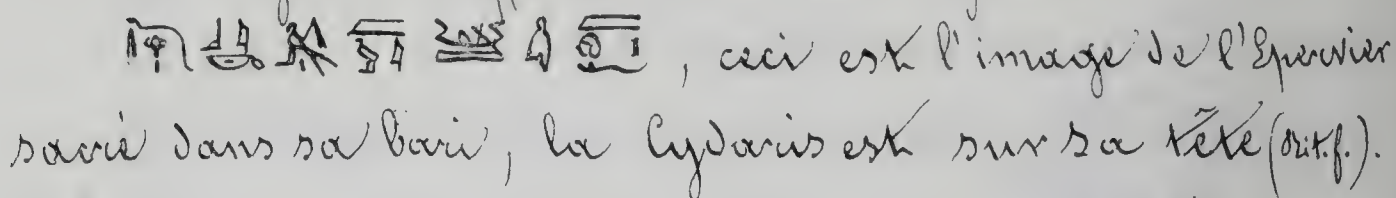 , ceci est l'image de l'Epervier
sacré dans sa bari, la Cydaris est sur sa tête (Rit. f.).